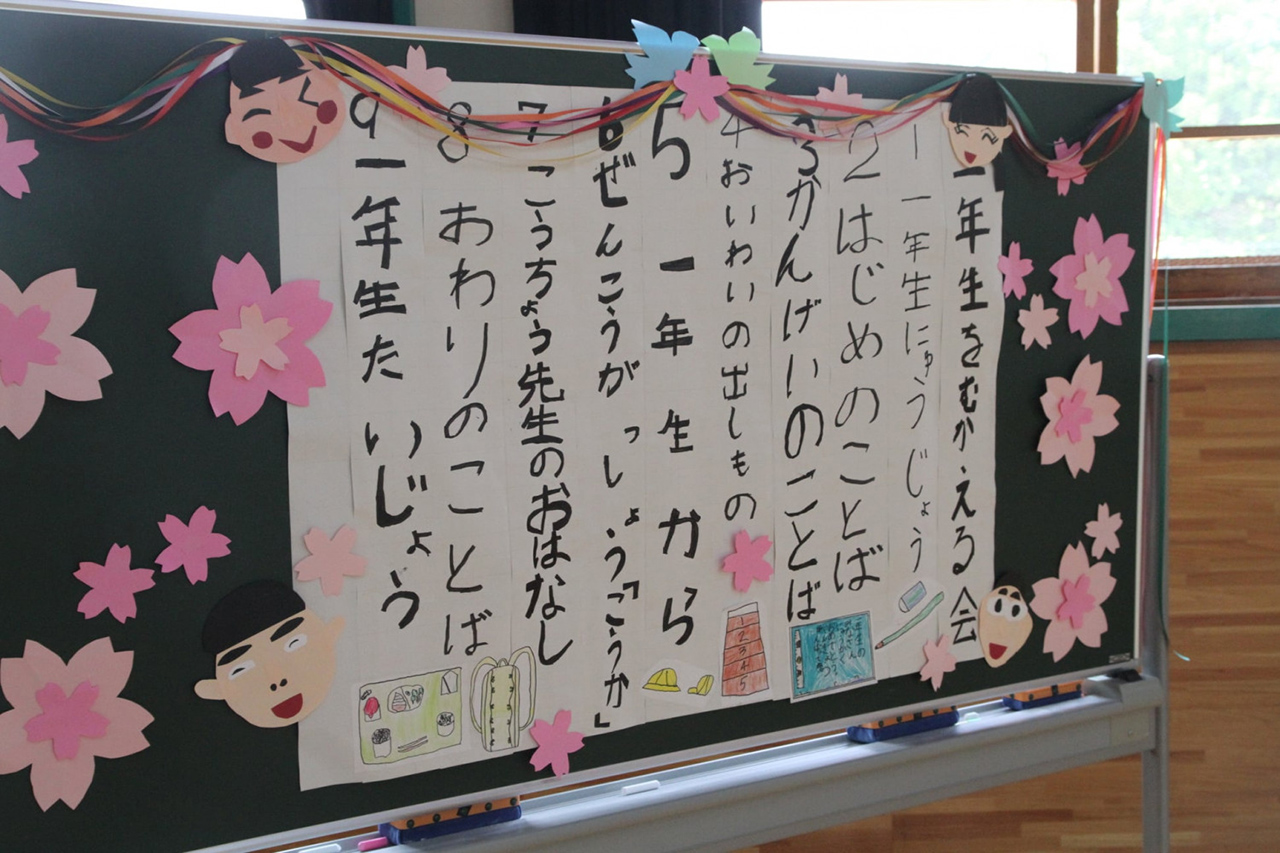 一年生をむかえる会
1 一年生にゅうじょう
2 はじめのことば
3 かんげいのことば
4 おいわいの出しもの
5 一年生から
6 ぜんこうがっしょう「こうか」
7 こうちょう先生のおはなし
8 おわりのことば
9 一年生たいじょう
1
2
3
4
5